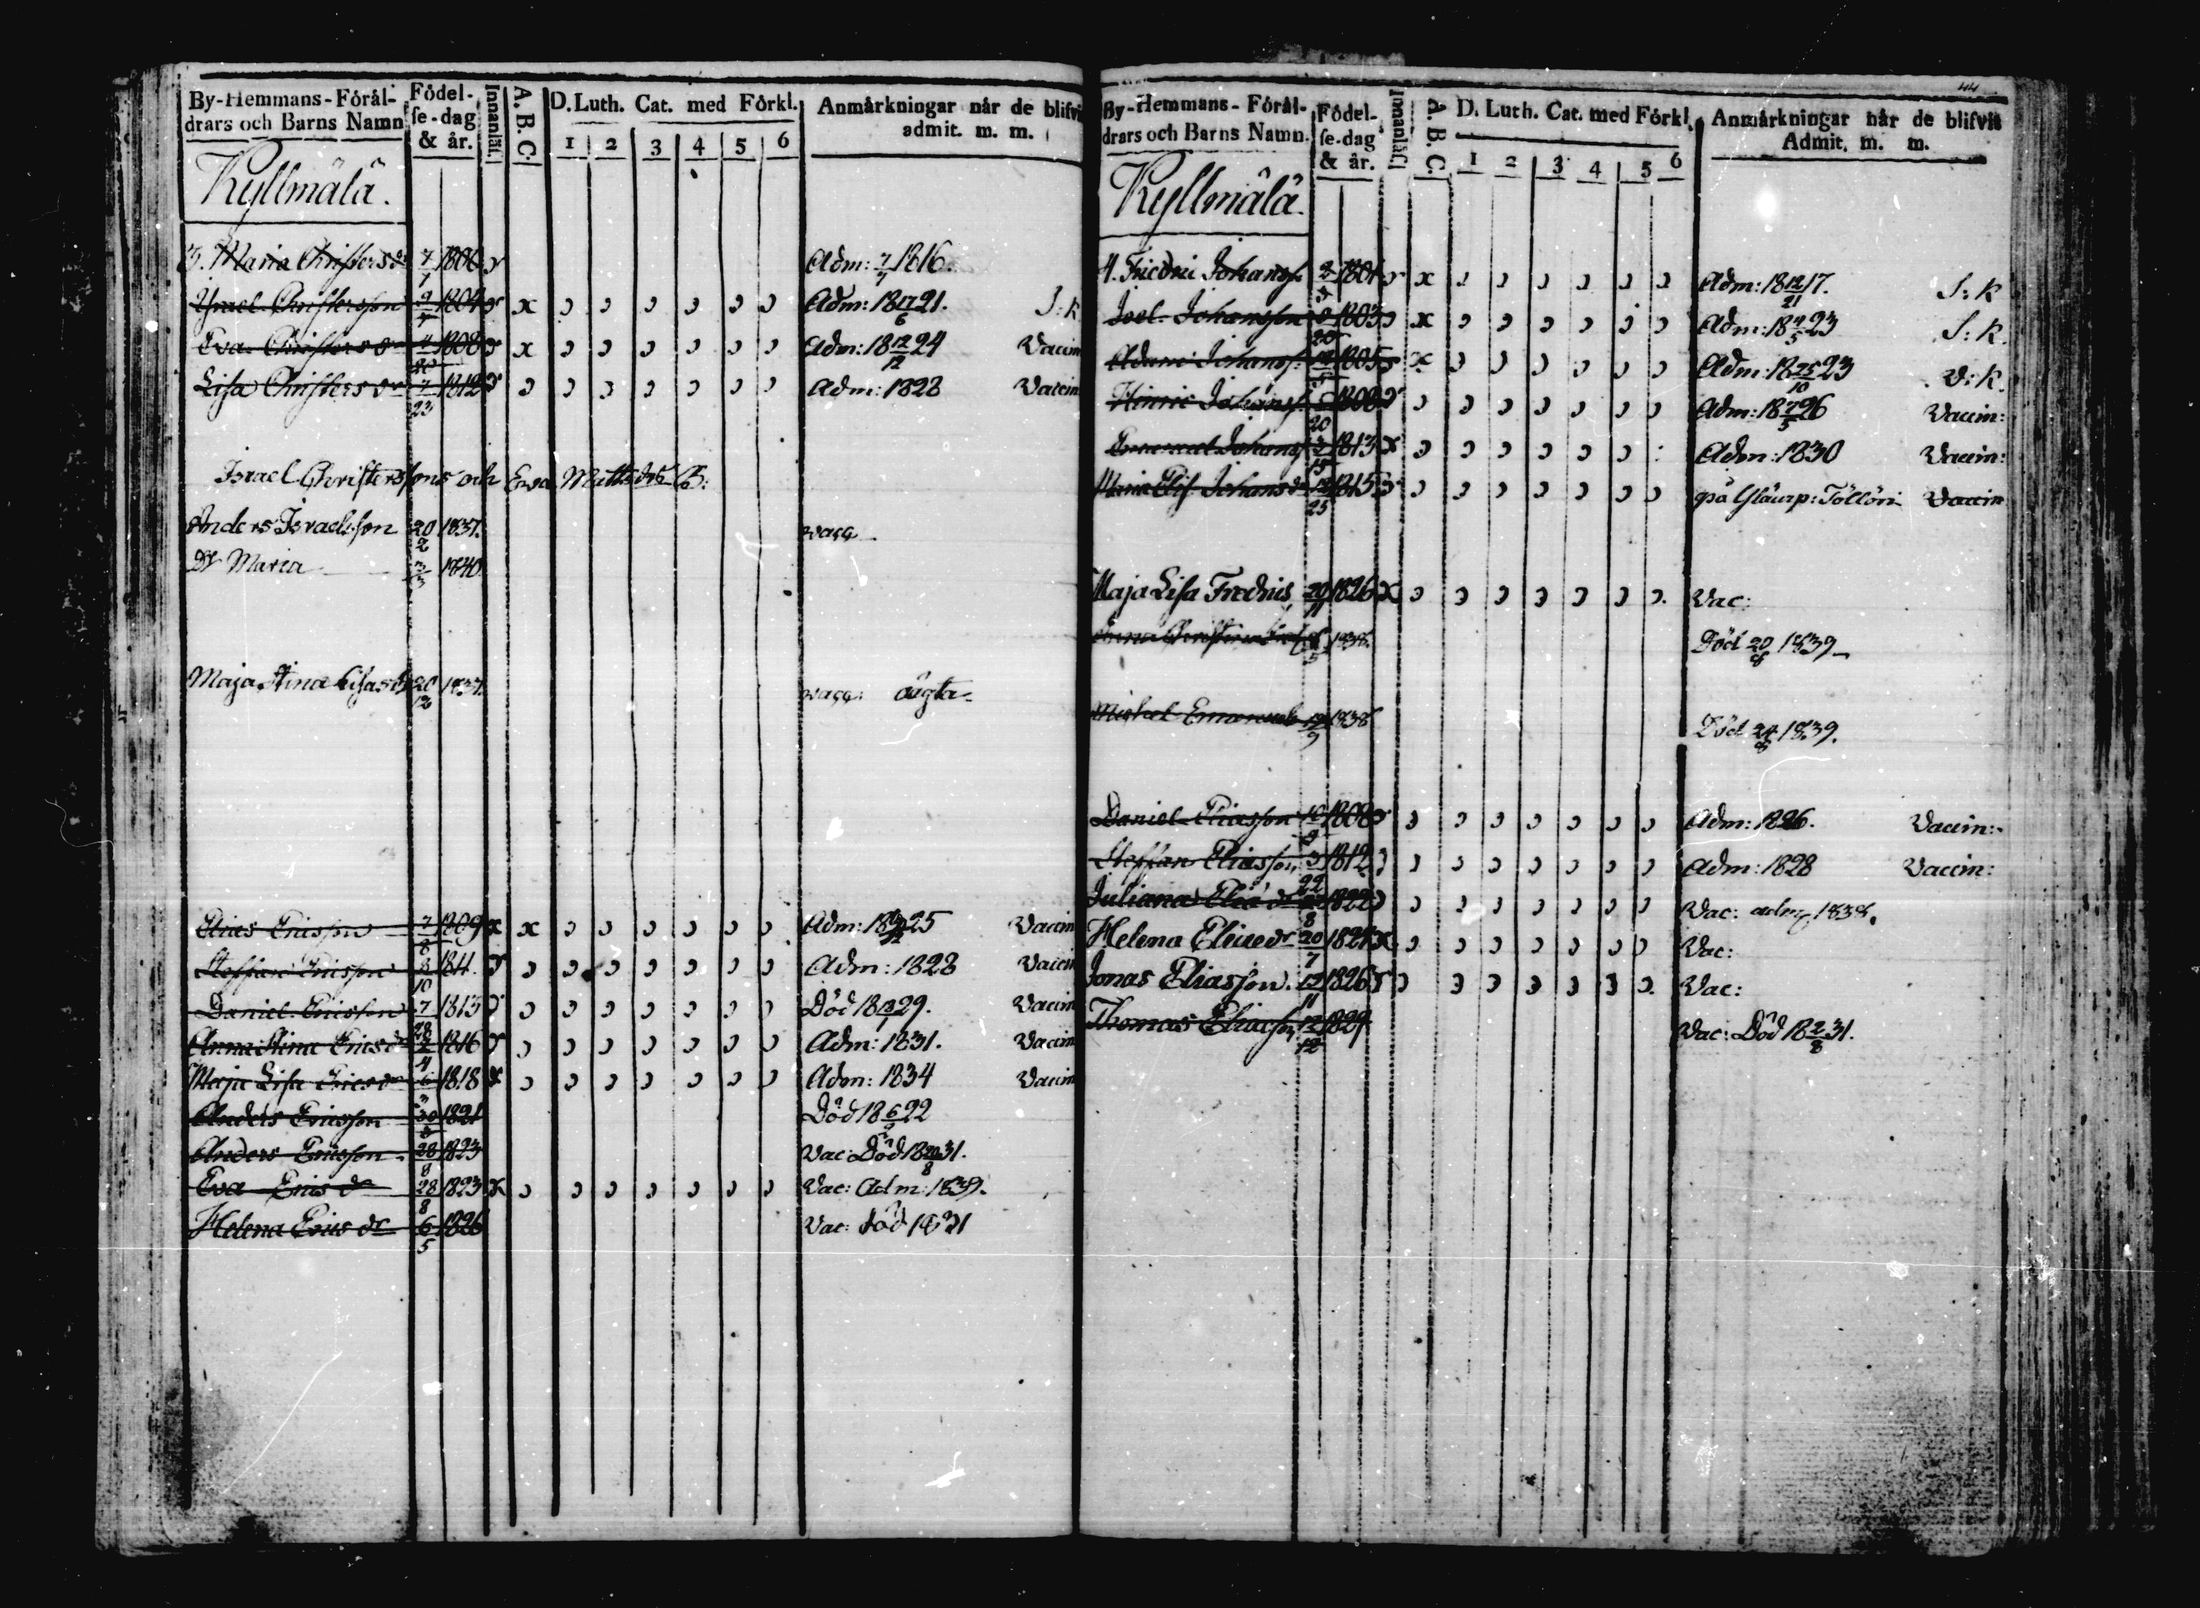 By-Hemmans-Fórål-
drars och Barns Namn
Födel-
se-dag
& år.
Innanläf.
A. B. C.
D. Luth. Cat. med Förkl.
1 2 3 4 5 6
Anmårkningar når de blifvi
admit. m. m.
Kyllmälä.
3. Maria Christersdr 7/1 1800 Adm: 7/7 1816.
Christersson 1804 x Adm: 18 17/6 21. S: k
Eva Christersdr 1808 x Adm: 18 12/12 24 Vaccin
Lisa Christersdr 7/23 1812 Adm: 1828 Vaccin
Israel Christerssons och Eva Matts drs B:
Anders Israelsson 20/2 1837. vacc
Dr Maria 1840.
Maja Stina 20/12 1837. vacc: öägta
Elias Ericsson 7/8 1809 x x Adm: 18 25 Vaccin
Steffan Ericsson 8/10 1811. Adm: 1828 Vaccin
Daniel Ericsson 7/28 1813 Död 18 29. Vaccin
Anna Stina Ericsdr 1816 Adm: 1831. Vaccin
Maja Lisa Ericsdr 1818 x Adm: 1834 Vaccin
Anders Ericsson 30 1821 Död 18 6 22
Anders Ericsson 28/8 1823 Vac: Död 18 20/8 31.
Eva Ericsdr 28/8 1823 x Vac: Adm: 1839.
Helena Ericsdr 6/5 1826 Vac: död 1831
44
By-Hemmans-Fórål-
drars och Barns Namn.
Födel-
se-dag
& år.
Innanläf.
A. B. C.
D. Luth. Cat. med Förkl.
1 2 3 4 5 6
Anmårkningar når de blifvit
Admit. m. m.
Kyllmälä.
4. Fredric Johanss. 1801 x Adm: 18 12/21 17. S: k
Joel Johansson 1803 x Adm: 18 4/5 23 S: k.
Adam Johanss. 1805 x Adm: 18 25/10 23 V: k.
Hinric Johanss. 1808 Adm: 18 7/5 26 Vaccin:
Emanuel Johanss 3/15 1813 x Adm: 1830 Vaccin:
Maria Elis Johansdr 1815 på Vaccin
Maja Lisa Fredrics 20/11 1826 x Vac:
Anna Christina 1838. Död 20/8 1839
Michel Emanuels 1838 Död 24/8 1839.
Daniel Eliasson 1808 Adm: 1826. Vaccin:
Steffan Eliasson 3/22 1812 Adm: 1828 Vaccin:
Juliana Eliædr 1822 Vac: adm: 1838.
Helena Eliædr 20/7 1824 x Vac:
Jonas Eliasson. 12/11 1826 Vac:
Thomas Eliasson 12/12 1829 Vac: Död 18 2/8 31.